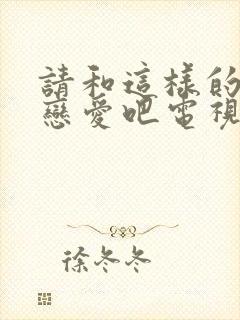 請和這樣的
戀愛吧電視
徐冬冬